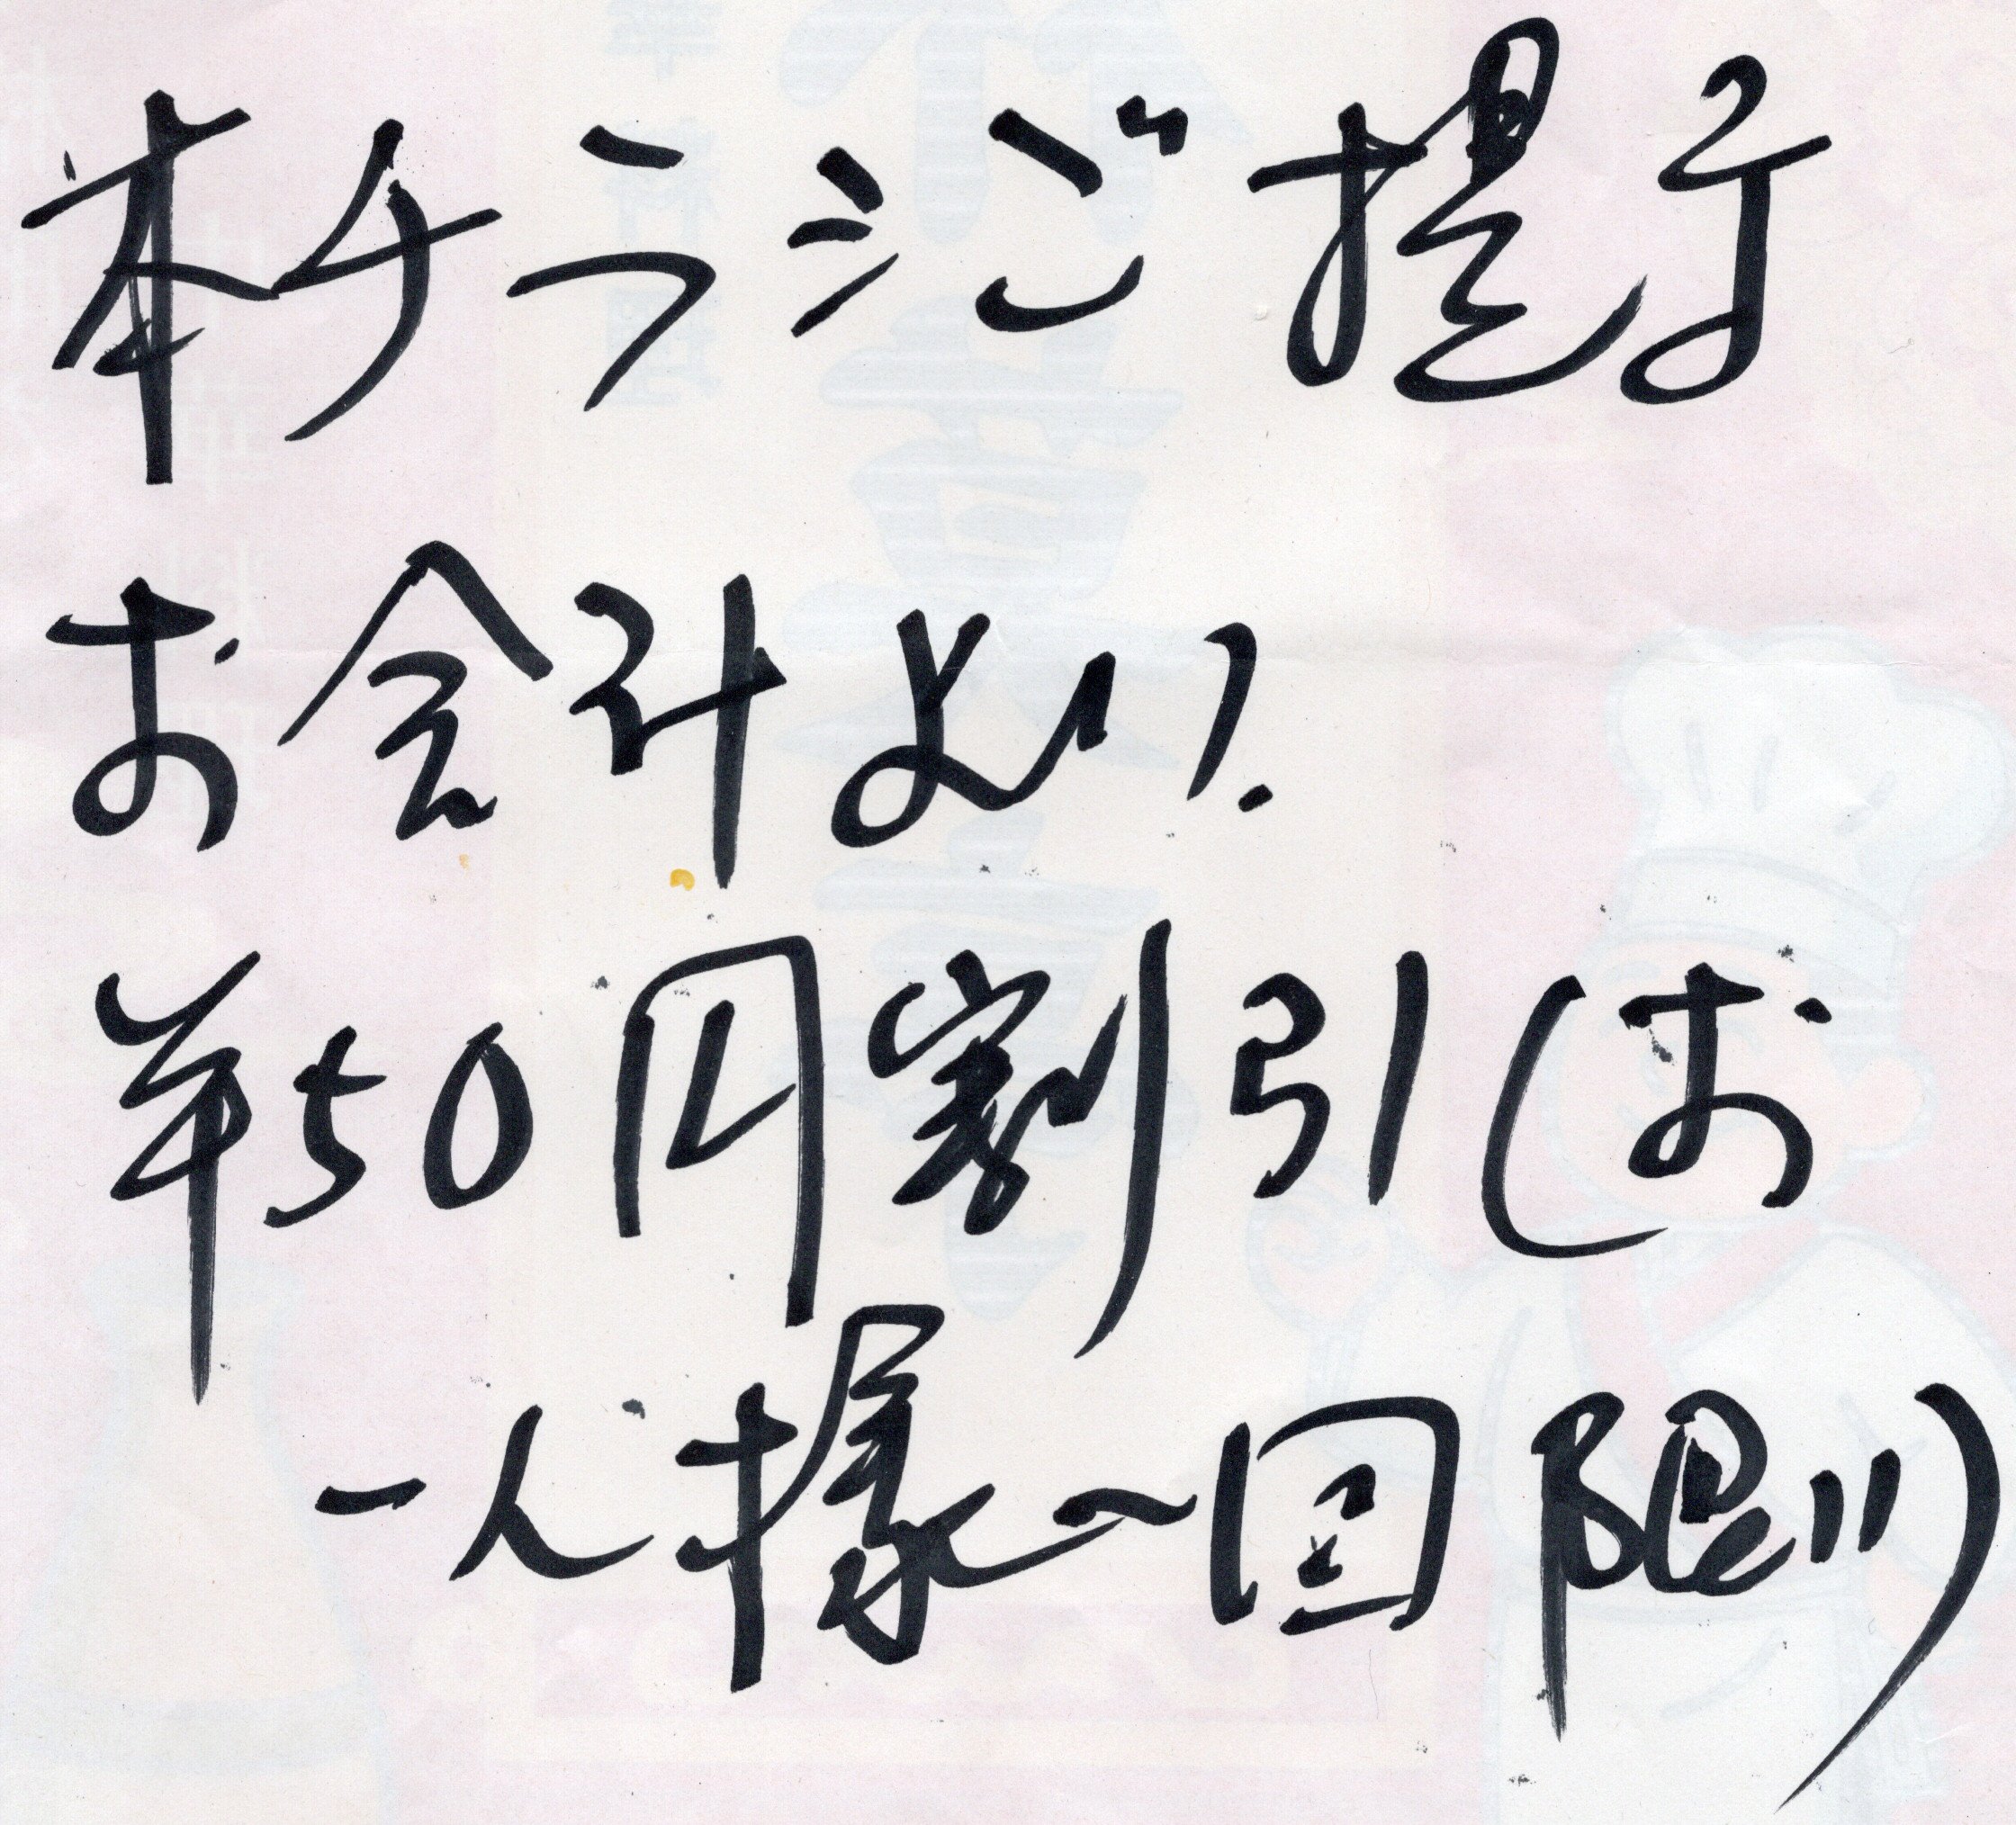 本チラシご提示
お会計より.
¥50円割引(お
一人様一回限り)